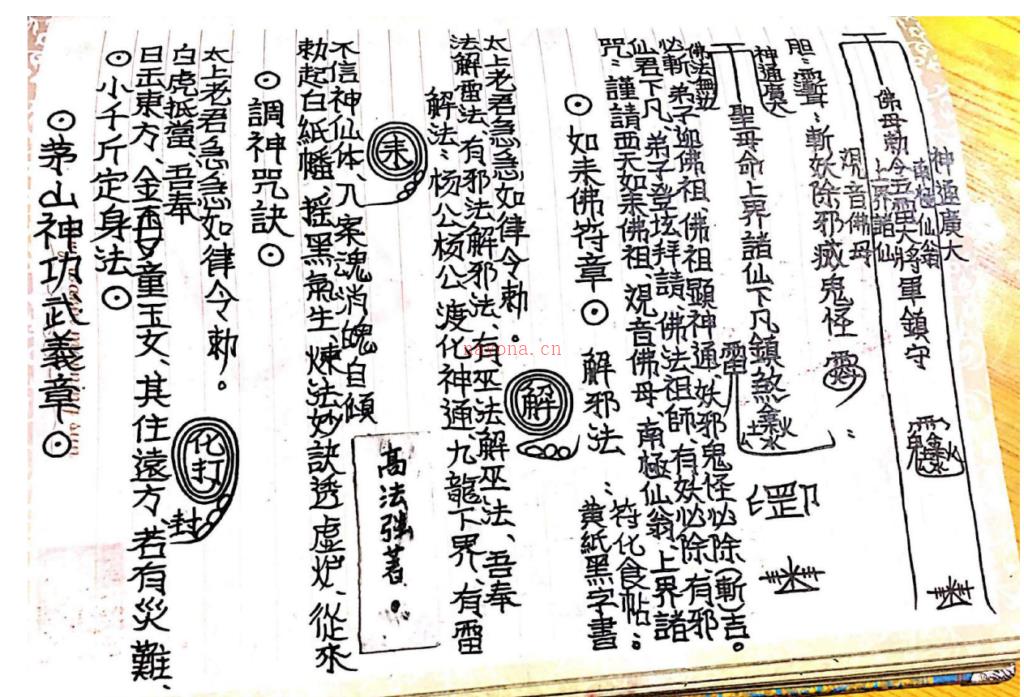 ⊙茅山神功武義章⊙
⊙小千斤定身法⊙
日出東方、金童玉女、其住遠方、若有災難、
白虎抵當、吾奉
太上老君急急如律令勅。
化打
封
⊙調神咒訣⊙
勅起白紙幡、摇黑氣生、煉法妙訣透虚炉、從來
不信神仙体、入案魂消魄自傾
高法強著。
耒
解法:杨公杨公、渡化神通、九龍下界、有雷
法解雷法、有邪法解邪法、有巫法解巫法、吾奉
太上老君急急如律令勅。
解
⊙如来佛符章⊙ 解邪法:黄紙黑字書
符化食帖:
咒:謹請西天如来佛祖、观音佛母、南極仙翁、上界諸
仙君下凡、弟子登坛拜請、佛法祖師、有妖必除、有邪
必斬、弟子迎佛祖、佛祖顯神通、妖邪鬼怪必除(斬)吉。
佛法無边
聖母命上界諸仙下凡鎮煞
神通廣大
雷
金木水火土
罡
胆:靈聳:斬妖除邪滅鬼怪
观音佛母
上界諸仙
佛母勅令五雷大將軍鎮守
南極仙翁
神通廣大
nayona.cn